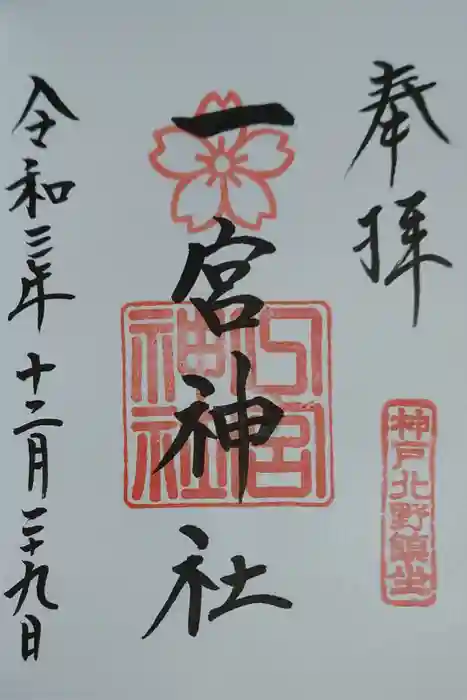 奉拝
神戸北野鎮坐
一宮神社
一宮神社
令和三年十二月二十九日